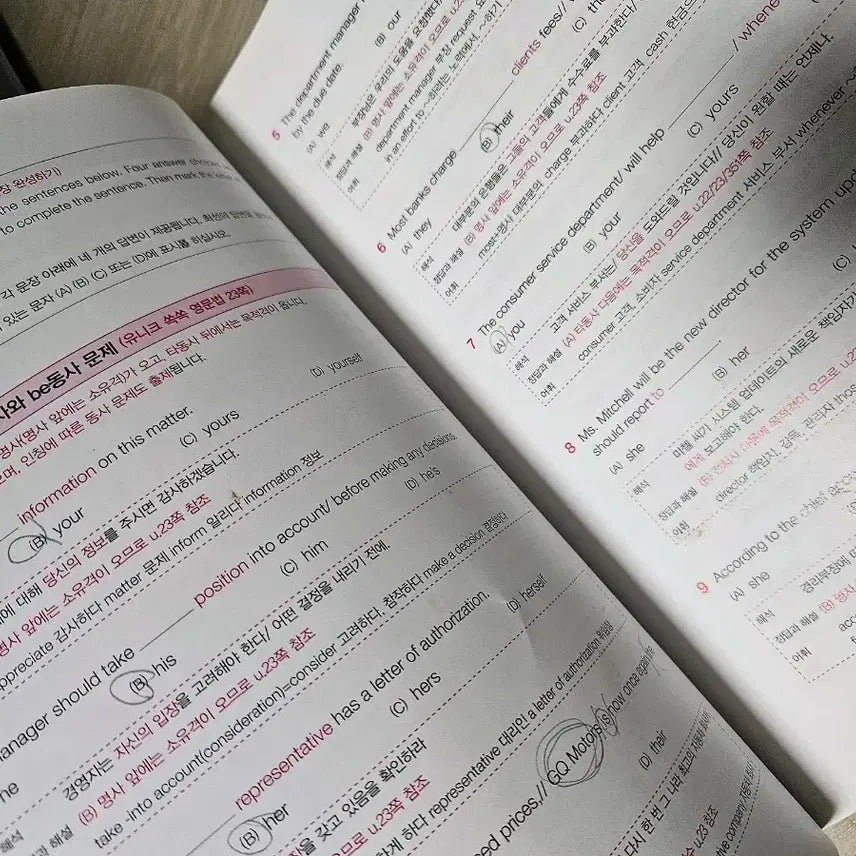 장 완성하기)
the sentences below. Four answer
to complete the sentence. Then mark the
각 문장 아래에 네 개의 답변이 제공됩니다. 최선의 답변을
있는 문자 (A) (B) (C) 또는 (D)에 표시를 하십시오.
사와 be동사 문제 (유니크 쏙쏙 영문법 23쪽)
명사(명사 앞에는 소유격)가 오고, 타동사 뒤에서는 목적격이 옵니다.
으며, 인칭에 따른 동사 문제도 출제됩니다.
information on this matter.
(B) your (C) yours (D) yourself
에 대해 당신의 정보를 주시면 감사하겠습니다.
명사 앞에는 소유격이 오므로 u.23쪽 참조
appreciate 감사하다 matter 문제 inform 알리다 information 정보
manager should take position into account/ before making any decisions.
(B) his (C) him (D) he's
경영자는 자신의 입장을 고려해야 한다/ 어떤 결정을 내리기 전에.
(B) 명사 앞에는 소유격이 오므로 u.23쪽 참조
take -into account(consideration)=consider 고려하다, 참작하다 make a decision 결정하다
representative has a letter of authorization.
(B) her (C) hers (D) herself
을 갖고 있음을 확인하라
앞에는 소유격이 오므로 u.23쪽 참조
하게 하다 representative 대리인 a letter of authorization 위임장
prices,// GQ Motors is now once again the
(D) their
다시 한 번 그 나라 최고의
u.23 참조
5 The department manager
by the due date.
(A) we (B) our
해석 부장님은 우리의 도움을 요청했다
정답과 해설 (B) 명사 앞에는 소유격이 오므로
어휘 department manager 부장 request
in an effort to ~하려는 노력에서 ~하기
6 Most banks charge clients fees//
(A) they (B) their (C)
해석 대부분의 은행들은 그들의 고객들에게 수수료를 부과한다/
정답과 해설 (B) 명사 앞에는 소유격이 오므로 u.23쪽 참조
어휘 most+명사 대부분의 charge 부과하다 client 고객 cash 현금으
7 The consumer service department/ will help / whene
(A) you (B) your (C) yours
해석 고객 서비스 부서는/ 당신을 도와드릴 것입니다// 당신이 원할 때는 언제나.
정답과 해설 (A) 타동사 다음에는 목적격이 오므로 u.22/23/351쪽 참조
어휘 consumer 고객, 소비자 service department 서비스 부서 whenever
8 Ms. Mitchell will be the new director for the system upd
should report to
(A) she (B) her (C)
해석 미첼 씨가 시스템 업데이트의 새로운 책임자가
에게 보고해야 한다.
정답과 해설 (B) 전치사 다음에 목적격이 오므로
어휘 director 책임자, 감독, 관리자
9 According to the chief
(A) she
해석 경리부장에
정답과 해설 (B) 명사
어휘